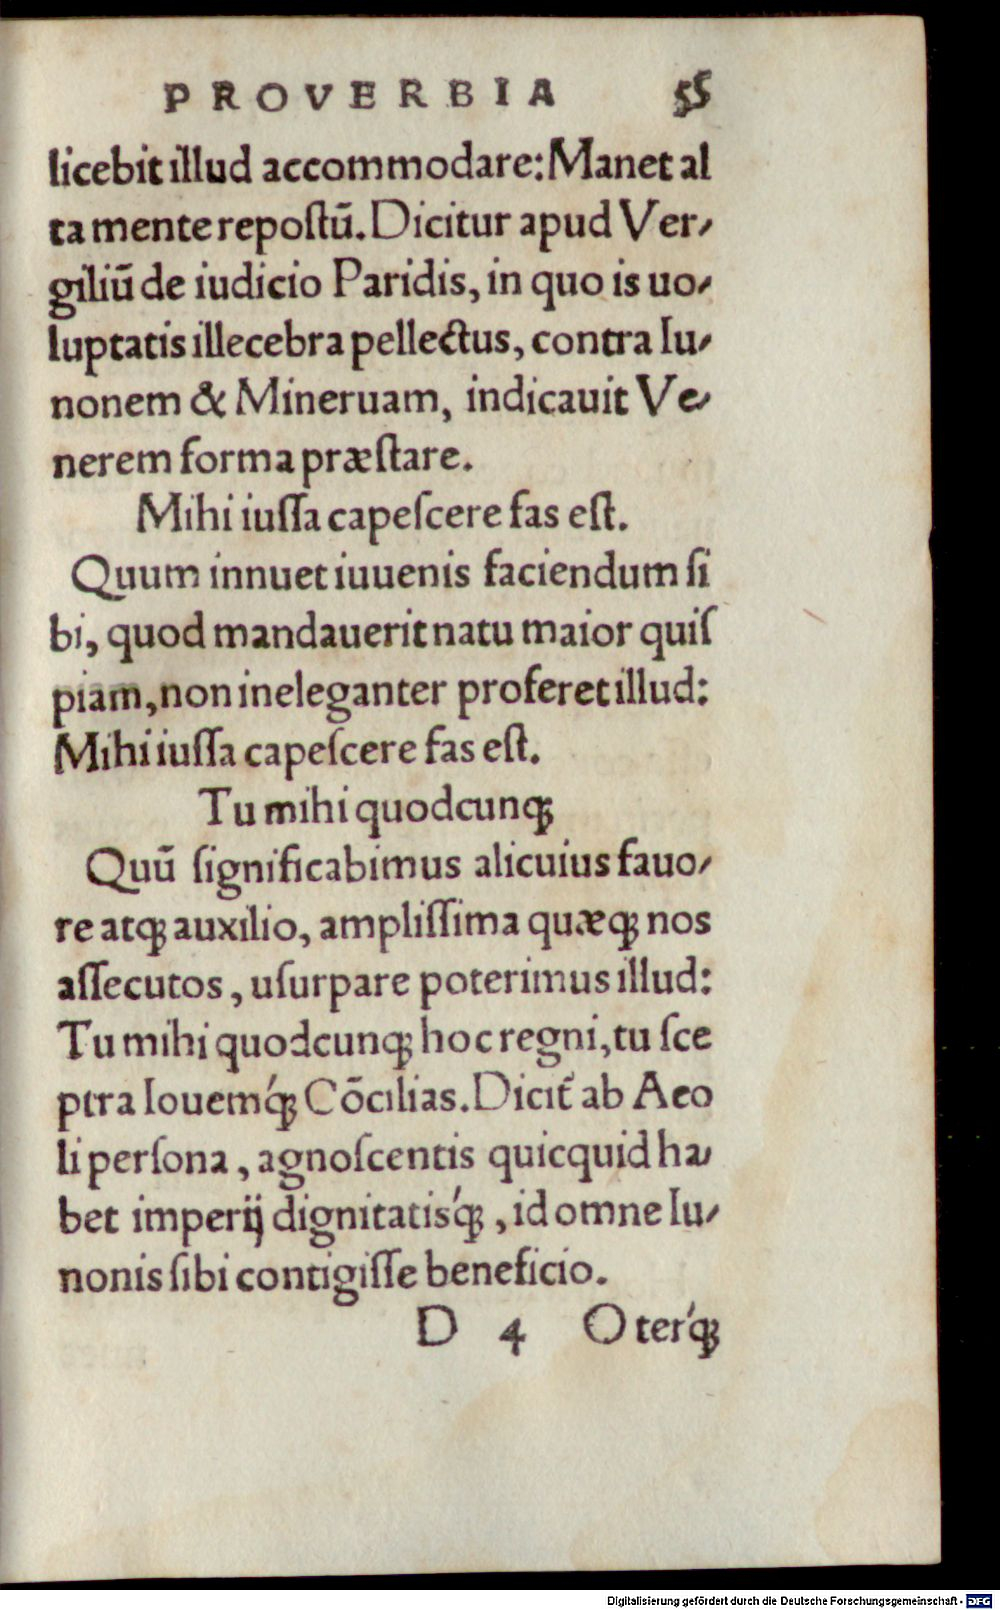 PROVERBIA 55
licebit illud accommodare: Manet al
ta mente repoſtũ. Dicitur apud Ver⸗
giliũ de iudicio Paridis, in quo is uo⸗
luptatis illecebra pellectus, contra Iu⸗
nonem & Mineruam, indicauit Ve⸗
nerem forma præſtare.
Mihi iuſſa capeſcere fas eſt.
Quum innuet iuuenis faciendum ſi
bi, quod mandauerit natu maior quiſ
piam, non ineleganter proferet illud:
Mihi iuſſa capeſcere fas eſt.
Tu mihi quodcunꝗ
Quũ ſignificabimus alicuius fauo⸗
re atꝗ auxilio, ampliſſima quæꝗ nos
aſſecutos, uſurpare poterimus illud:
Tu mihi quodcunꝗ hoc regni, tu ſce
ptra Iouemꝗ́ Cõcilias. Dicit᷑ ab Aeo
li perſona, agnoſcentis quicquid ha⸗
bet imperij dignitatisꝗ́, id omne Iu⸗
nonis ſibi contigiſſe beneficio.
D 4 O terꝗ́
Digitalisierung gefördert durch die Deutsche Forschungsgemeinschaft - DFG